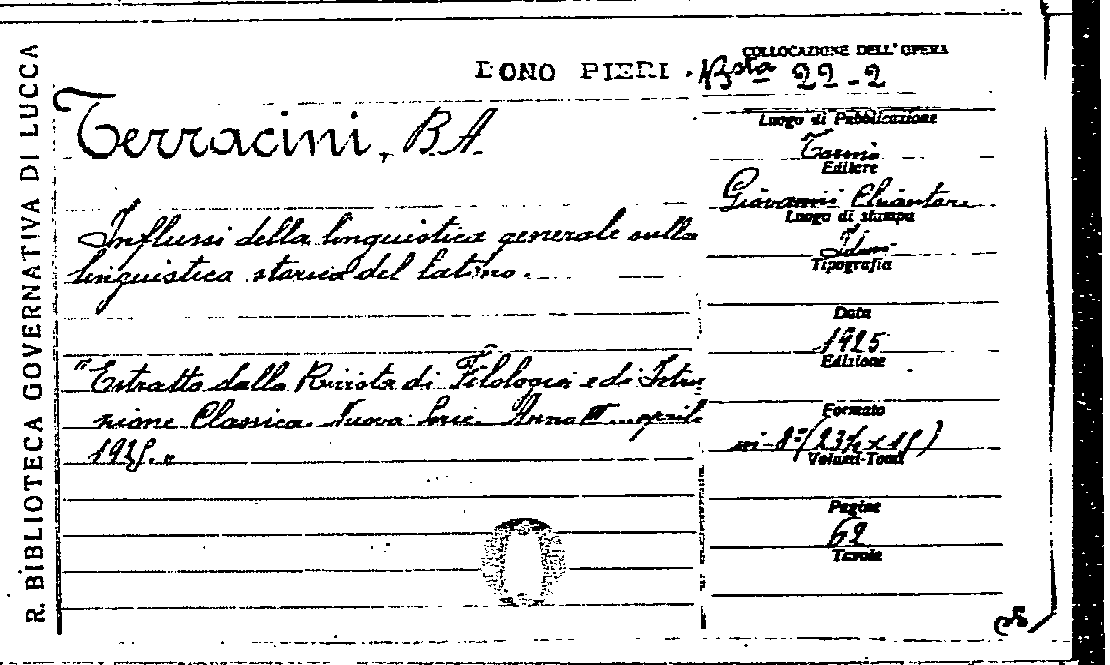 R. BIBLIOTECA GOVERNATIVA DI LUCCA
DONO PIERI.
COLLOCAZIONE DELL'OPERA
Bsta 22-2
Terracini, B.A.
Influssi della linguistica generale sulla
linguistica storica del latino.
"Estratto dalla Rivista di Filologia e di Istru
zione Classica. Nuova Serie. Anno III. aprile
1925."
Luogo di Pubblicazione
Torino
Editore
Giovanni Chiantore
Luogo di stampa
Idem
Tipografia
Data
1925
Edizione
Formato
in-8°(23½ x 15)
Volumi-Tomi
Pagine
62
Tavole